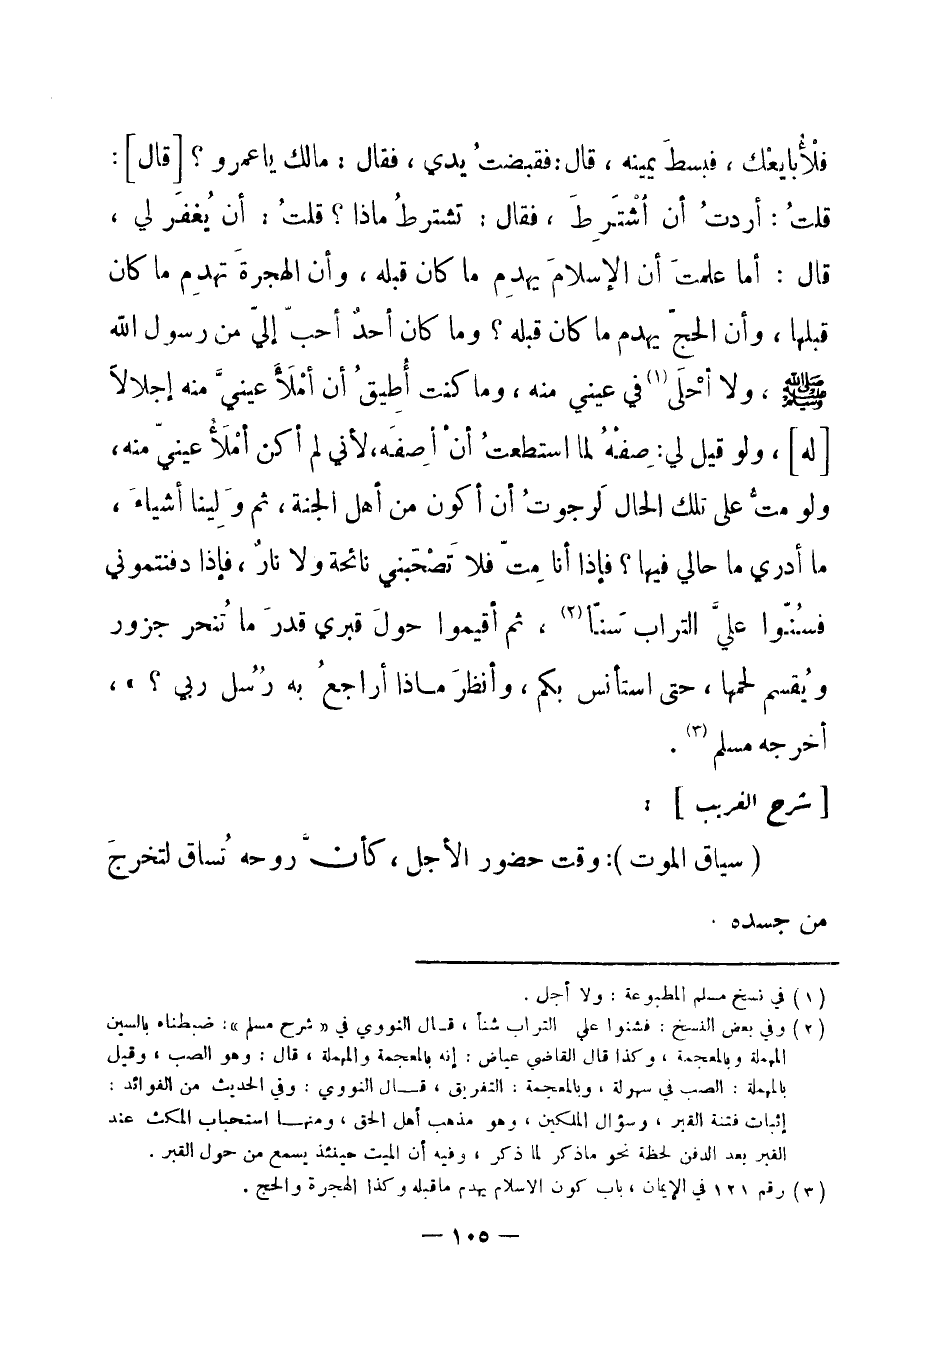 فلْأُبايعْك ، فبسطَ يمينه ، قال : فقبضتُ يدي ، فقال : مالك ياعمرو ؟ [ قال ] :
قلتُ : أردتُ أن أشْتَرِطَ ، فقال : تشترطُ ماذا ؟ قلتُ : أن يُغفَر لي ،
قال : أما علمتَ أن الإسلامَ يهدِم ما كان قبله ، وأن الهجرةَ تهدِم ما كان
قبلها ، وأن الحجّ يهدم ما كان قبله ؟ وما كان أحدٌ أحبّ إليّ من رسول الله
ﷺ ، ولا أحْلَى (١) في عيني منه ، وما كنت أُطيقُ أن أمْلَأَ عينيَّ منه إجلالاً
[ له ] ، ولو قيل لي : صِفْهُ لما استطعت أنْ أصِفَه ، لأني لم أكن أمْلَأُ عينيّ منه ،
ولو متُّ على تلك الحال لَرجوتُ أن أكون من أهل الجنة ، ثم وَلِينا أشياءَ ،
ما أدري ما حالي فيها ؟ فإذا أنا مِتّ فلا تَصْحَبني نائحة ولا نارٌ ، فإذا دفنتموني
فسُنّوا عليَّ التراب سَنّاً (٢) ، ثم أقيموا حولَ قبري قدرَ ما تُنحر جزور
ويُقسم لحمها ، حتى استأنس بكم ، وأنظرَ مـاذا أراجعُ به رُسُل ربي ؟ » ،
أخرجه مسلم (٣) .
[ شرح الغريب ] :
( سياق الموت ) : وقت حضور الأجل ، كأنَّ روحه تُساق لتخرجَ
من جسده .
(١) في نسخ مسلم المطبوعة : ولا أجل .
(٢) وفي بعض النسخ : فشنوا علي التراب شناً ، قـال النووي في « شرح مسلم » : ضبطناه بالسين
المهملة وبالمعجمة ، وكذا قال القاضي عياض : إنه بالمعجمة والمهملة ، قال : وهو الصب ، وقيل
بالمهملة : الصب في سهولة ، وبالمعجمة : التفريق ، قـــال النووي : وفي الحديث من الفوائد :
إثبات فتنة القبر ، وسؤال الملكين ، وهو مذهب أهل الحق ، ومنهــا استحباب المكث عند
القبر بعد الدفن لحظة نحو ماذكر لما ذكر ، وفيه أن الميت حينئذ يسمع من حول القبر .
(٣) رقم ١٢١ في الإيمان ، باب كون الاسلام يهدم ماقبله وكذا الهجرة والحج .
— ١٠٥ —